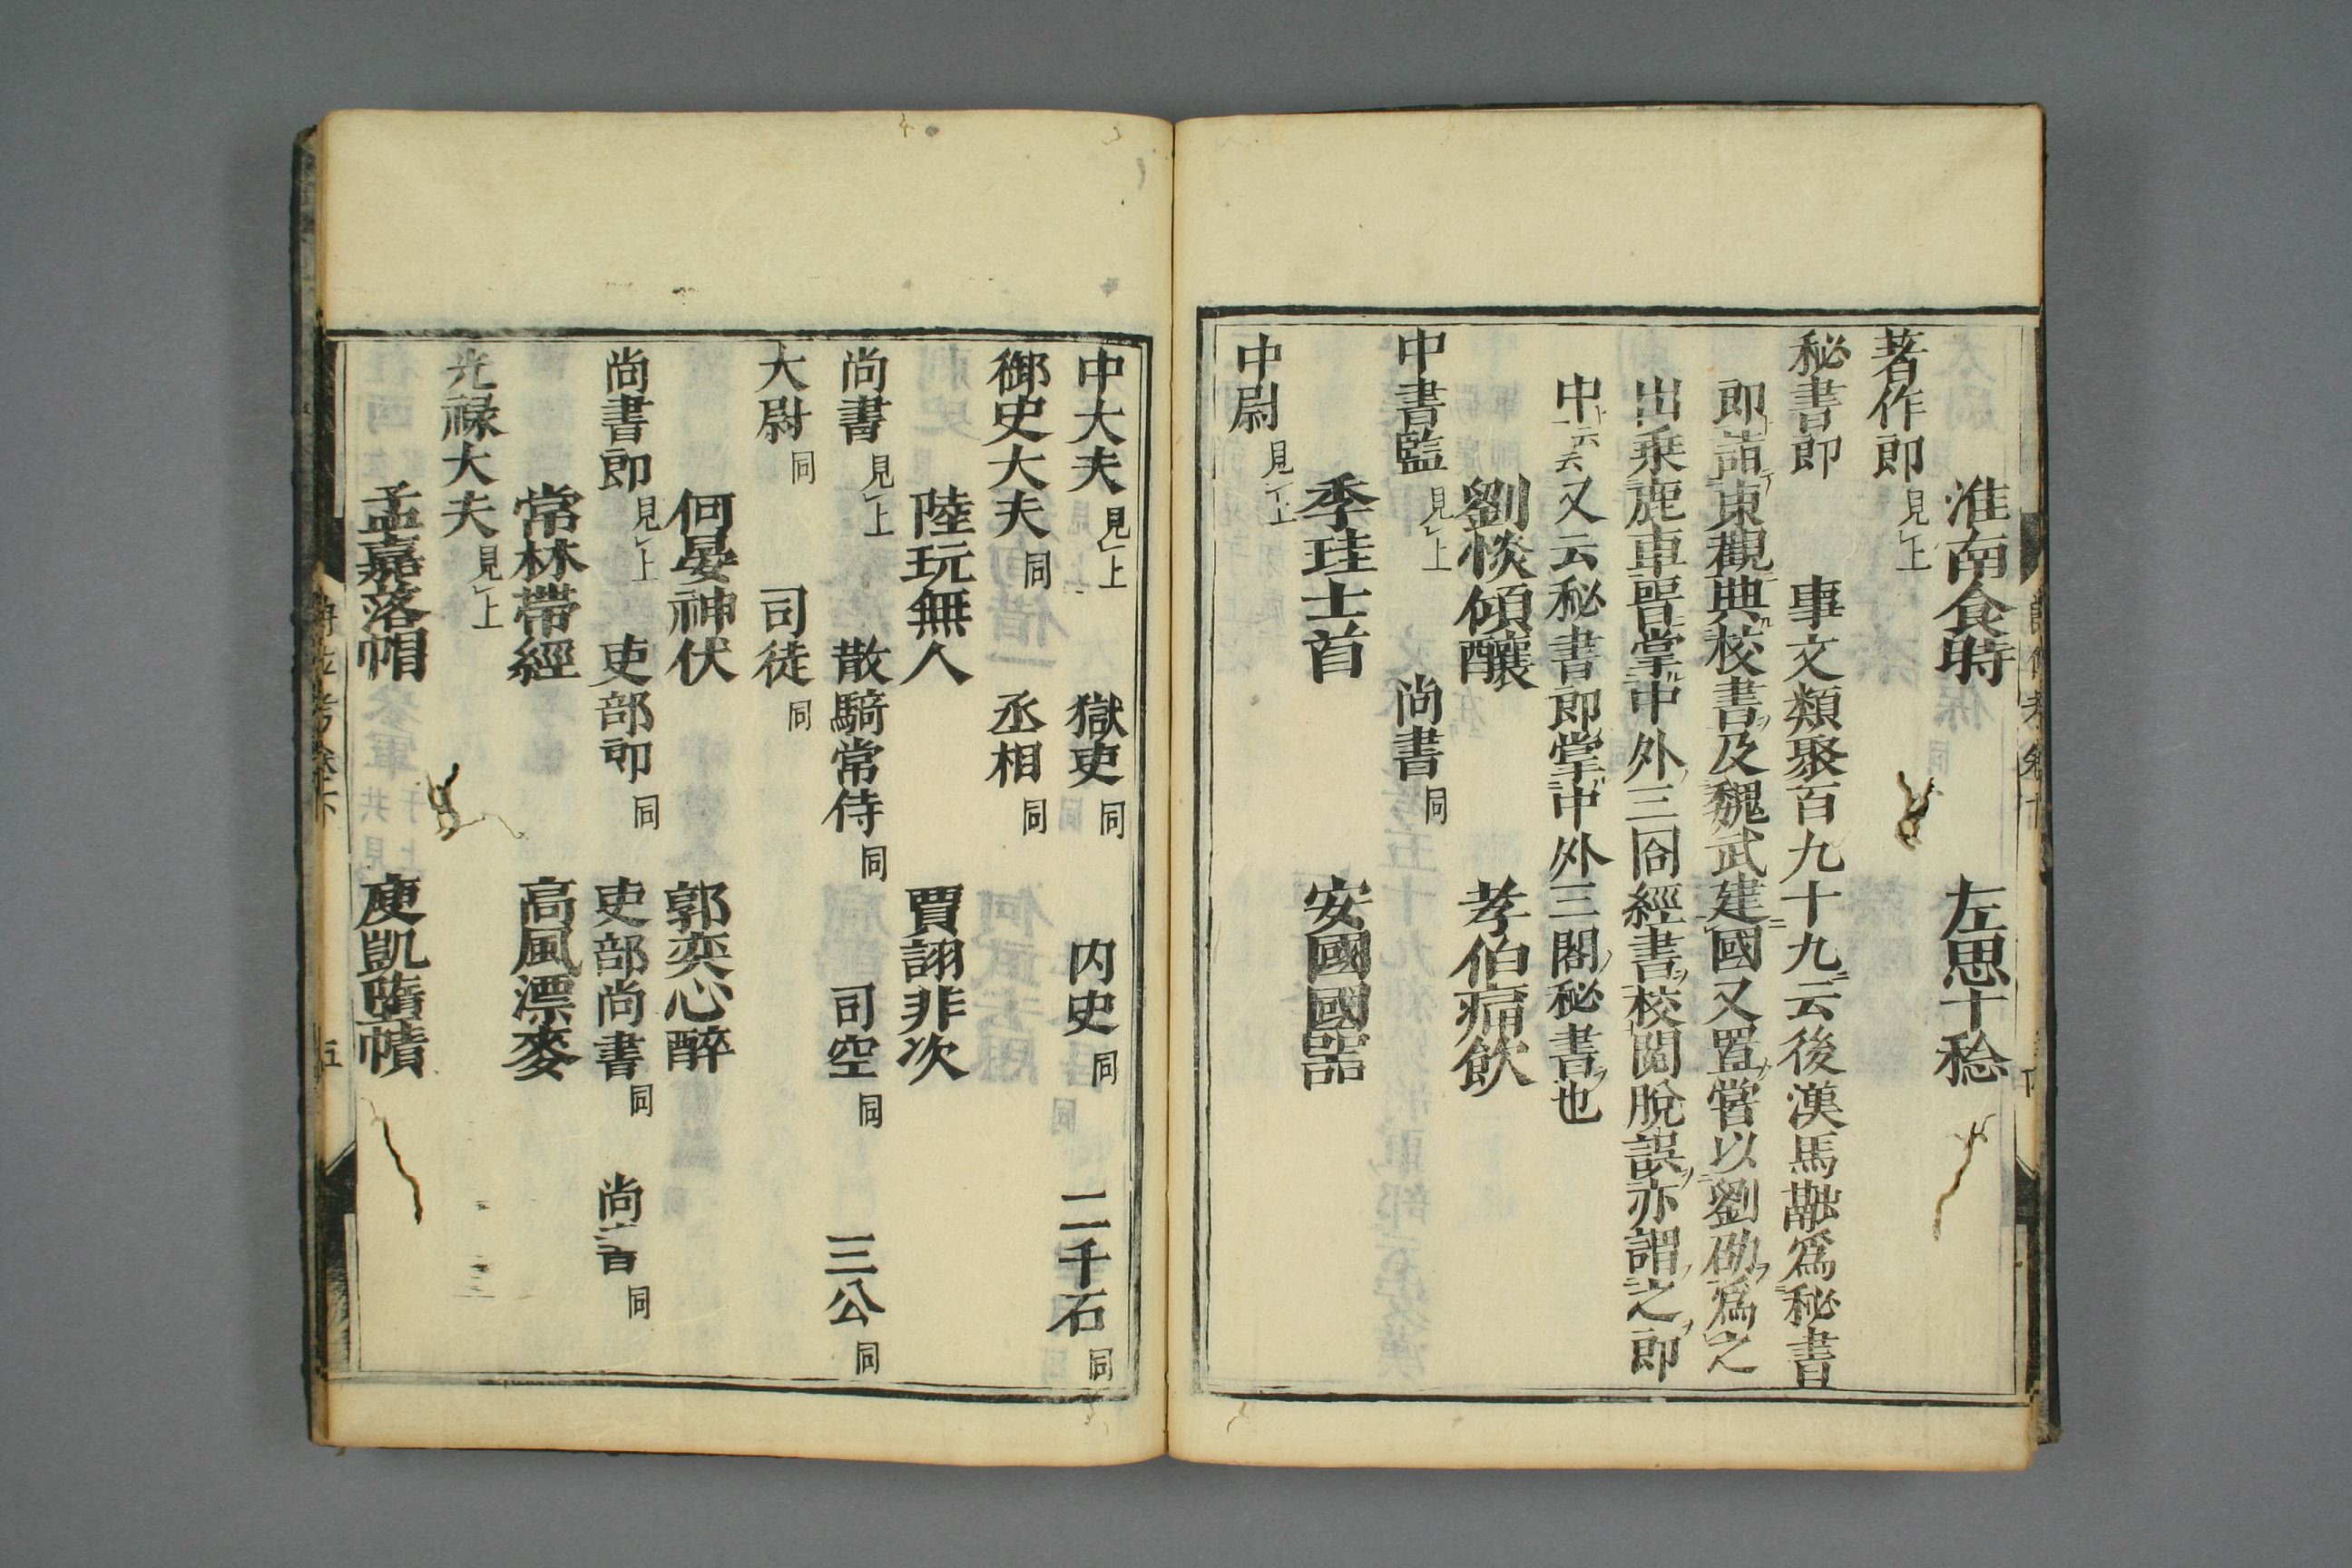 淮南食時　左思十稔
著作郎見上
秘書郎　事文類聚百九十九云後漢馬融為秘書
郎詣東觀典校書及魏武建國又置嘗以劉劭為之
出乗鹿車晉掌中外三閣經書校閲脫誤亦謂之郎
中云云又云秘書郎掌中外三閣秘書也
劉惔傾釀　孝伯痛飲
中書監見上　尚書同
季珪士首　安國國器
中尉見上
中大夫見上　獄吏同　内史同　二千石同
御史大夫同　丞相同
陸玩無人　賈詡非次
尚書見上　散騎常侍同　司空同　三公同
大尉同　司徒同
何晏神伏　郭奕心醉
尚書郎見上　吏部郎同　吏部尚書同　尚書同
常林帶經　高風漂麥
光禄大夫見上
孟嘉落帽　庾凱墮幘